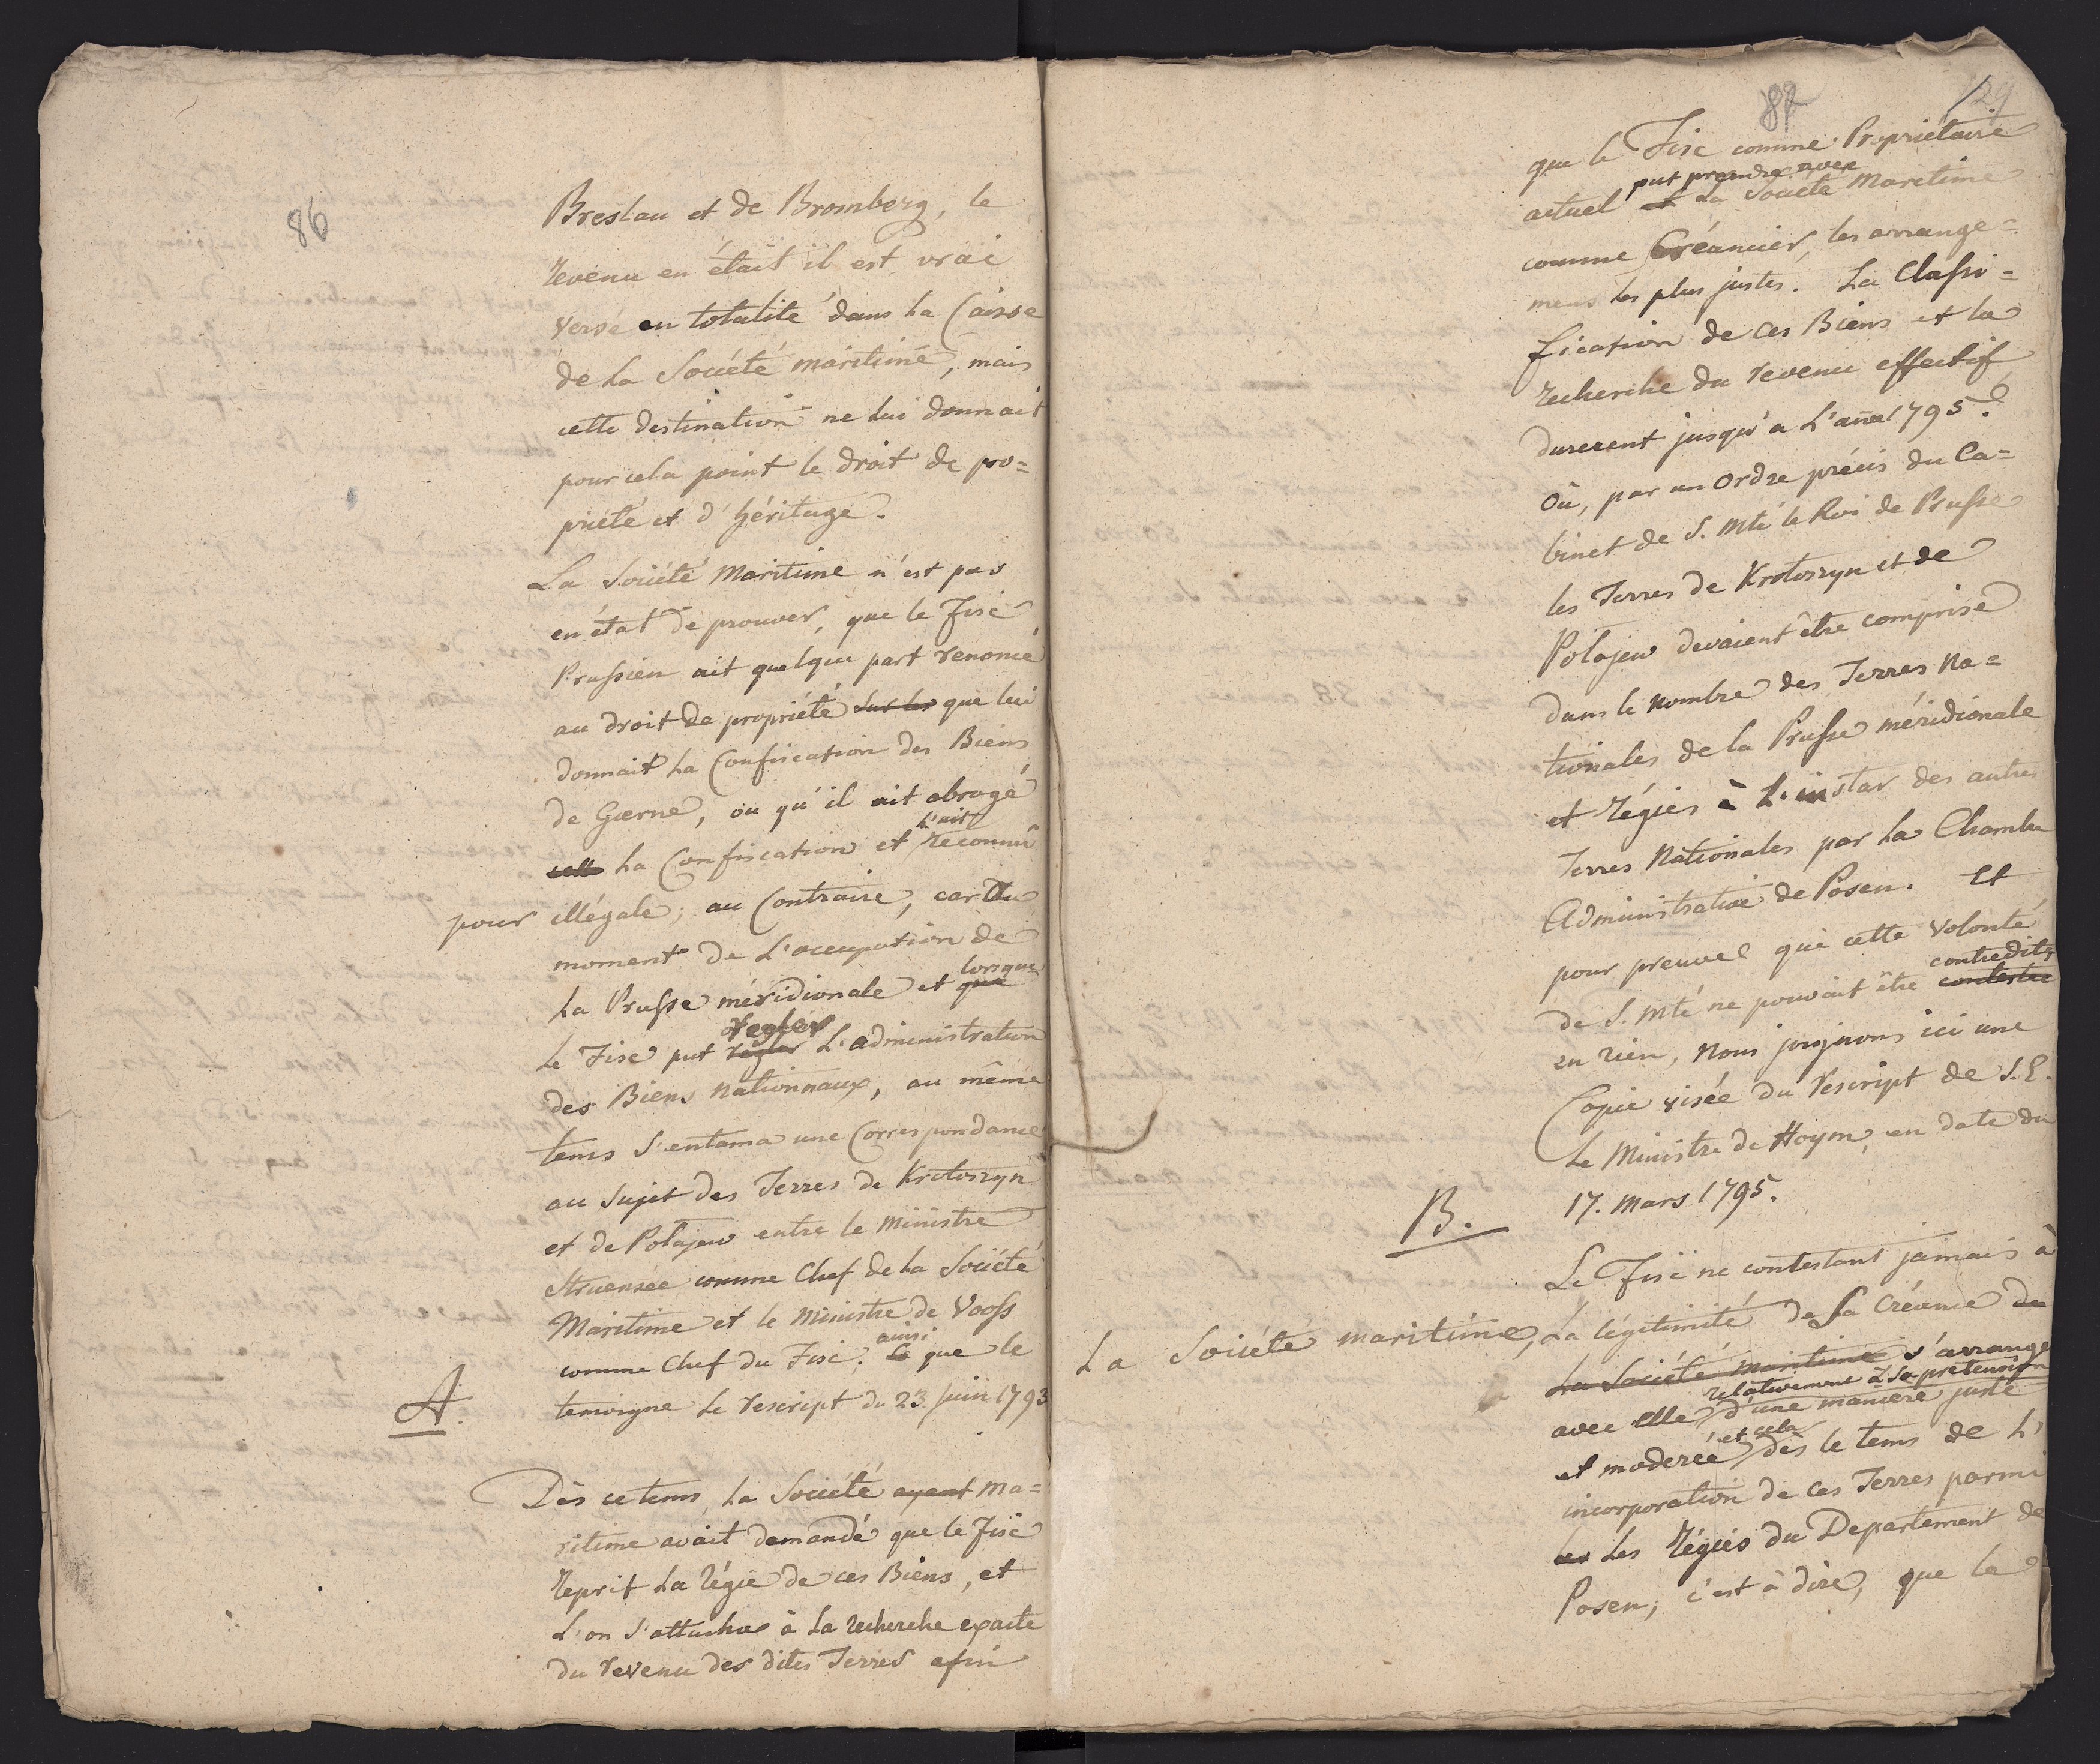 86
Breslau et de Bromberg, le
revenu en était il est vrai
versé en totalité dans la Caisse
de la Société maritime, mais
cette destination ne lui donnait
pour cela point le droit de pro=
priété et d'héritage.
La Société Maritime n'est pas
en état de prouver, que le Fisc
Prussien ait quelque part renoncé
au droit de propriété sur les que lui
donnait la Confiscation des Biens
de Gœrne, ou qu'il ait abrogé
l'ait
cette la Confiscation et reconnû
pour illégale; au Contraire, car du
moment de l'occupation de
lorsque
la Prusse méridionale et que
regler
le Fisc put regler l'administration
des Biens nationnaux, au même
tems s'entama une Correspondance
au sujet des Terres de Krotoszyn
et de Polajew entre le Ministre
Struensée comme Chef de la Société
Maritime et le Ministre de Vooss
ainsi
comme Chef du Fisc. Ce que le
A. temoigne le rescript du 23. Juin 1793
Dès ce tems, la Société ayant Ma=
ritime avait demandé que le Fisc
reprit la régie de ces Biens, et
l'on s'attacha à la recherche exacte
du revenu des dites Terres afin
87
129
que le Fisc comme Propriétaire
put prendre avec
actuel et la Société Maritime
comme Créancier, les arrange=
mens les plus justes. La Classi=
fication de ces Biens et la
recherche du revenu effectif
durerent jusqu'a L'année 1795.
Où, par un ordre précis du Ca=
binet de S. Mté le Roi de Prusse
les Terres de Krotoszyn et de
Polajew devaient être comprise
dans le nombre des Terres Na=
tionales de la Prusse méridionale
et régies à L'instar des autres
Terres Nationales par la Chambre
Administrative de Posen. Et
pour preuve que cette volonté
contredite
de S. Mté ne pouvait être contestée
en rien, nous joignons ici une
Copie visée du rescript de S. E.
le Ministre de Hoym, en date du
17. Mars 1795.
B.
Le Fisc ne contestant jamais à
La Société maritime, La légitimité de sa Créance de
la Société maritime s'arrange
relativement à sa prétension
avec elle d'une manière juste
et cela
et moderée dès le tems de l'
incorporation de ces Terres parmi
les les régies du Departement de
Posen, c'est à dire, que le